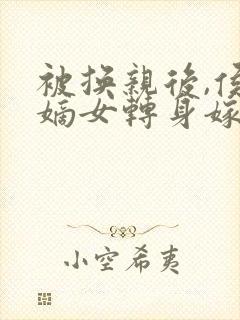 被換親後,侯
嫡女轉身嫁
小空希夷